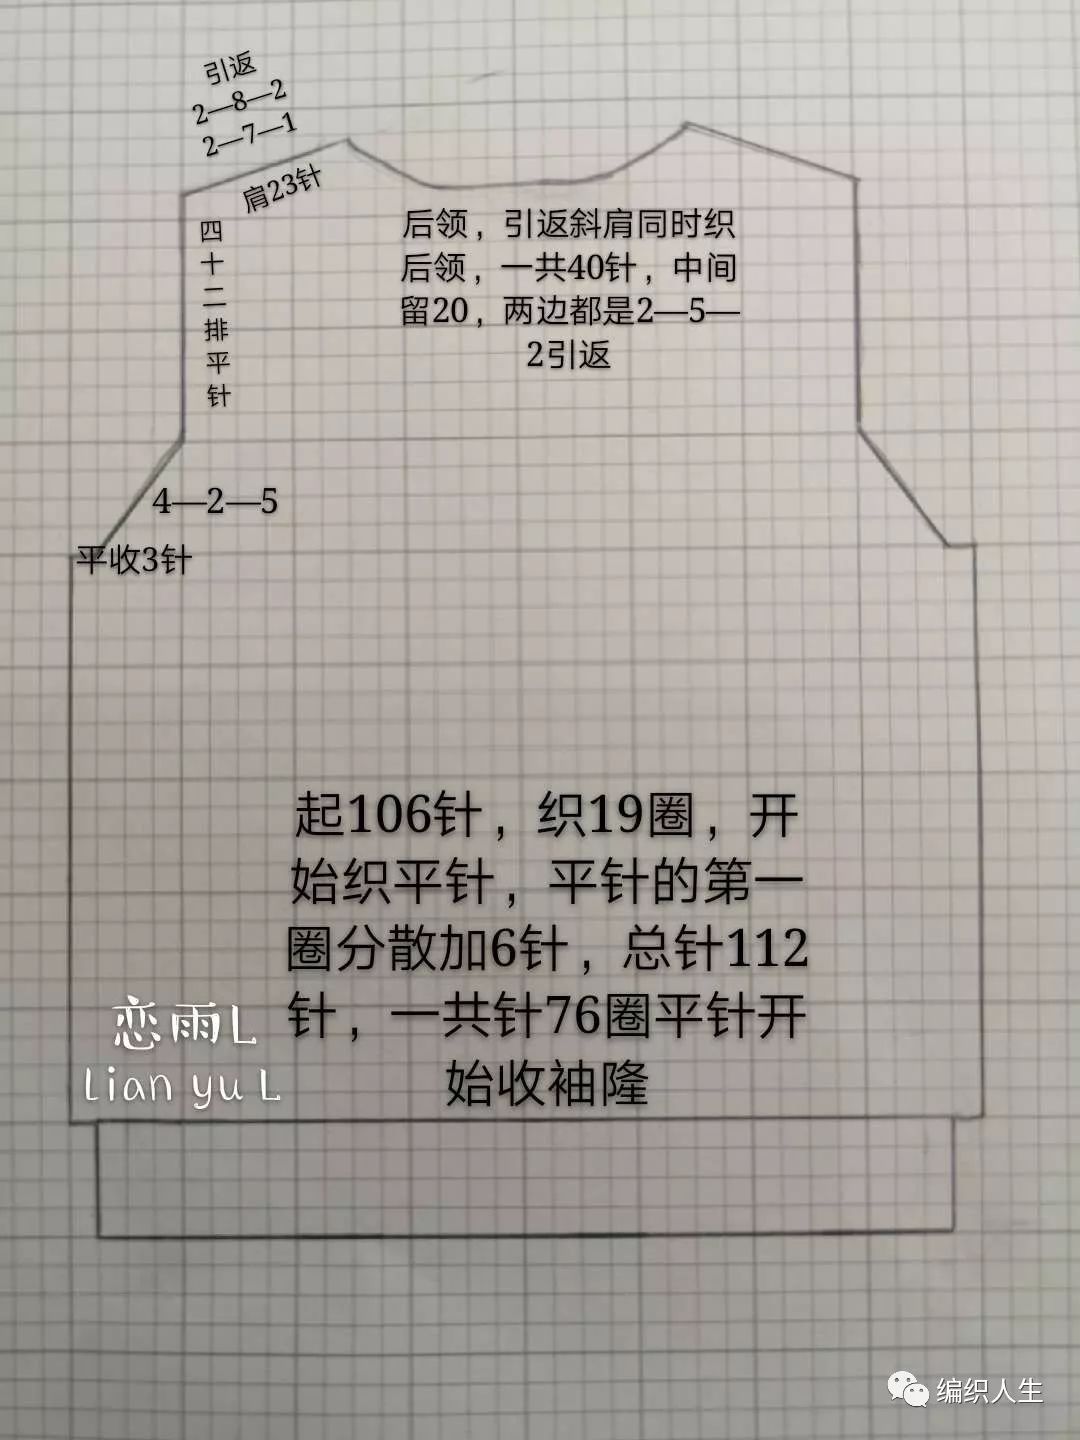 引返
2—8—2
2—7—1
肩23针
四
十
二
排
平
针
后领，引返斜肩同时织
后领，一共40针，中间
留20，两边都是2—5—
2引返
4—2—5
平收3针
起106针，织19圈，开
始织平针，平针的第一
圈分散加6针，总针112
针，一共针76圈平针开
始收袖隆
恋雨L
Lian yu L
编织人生